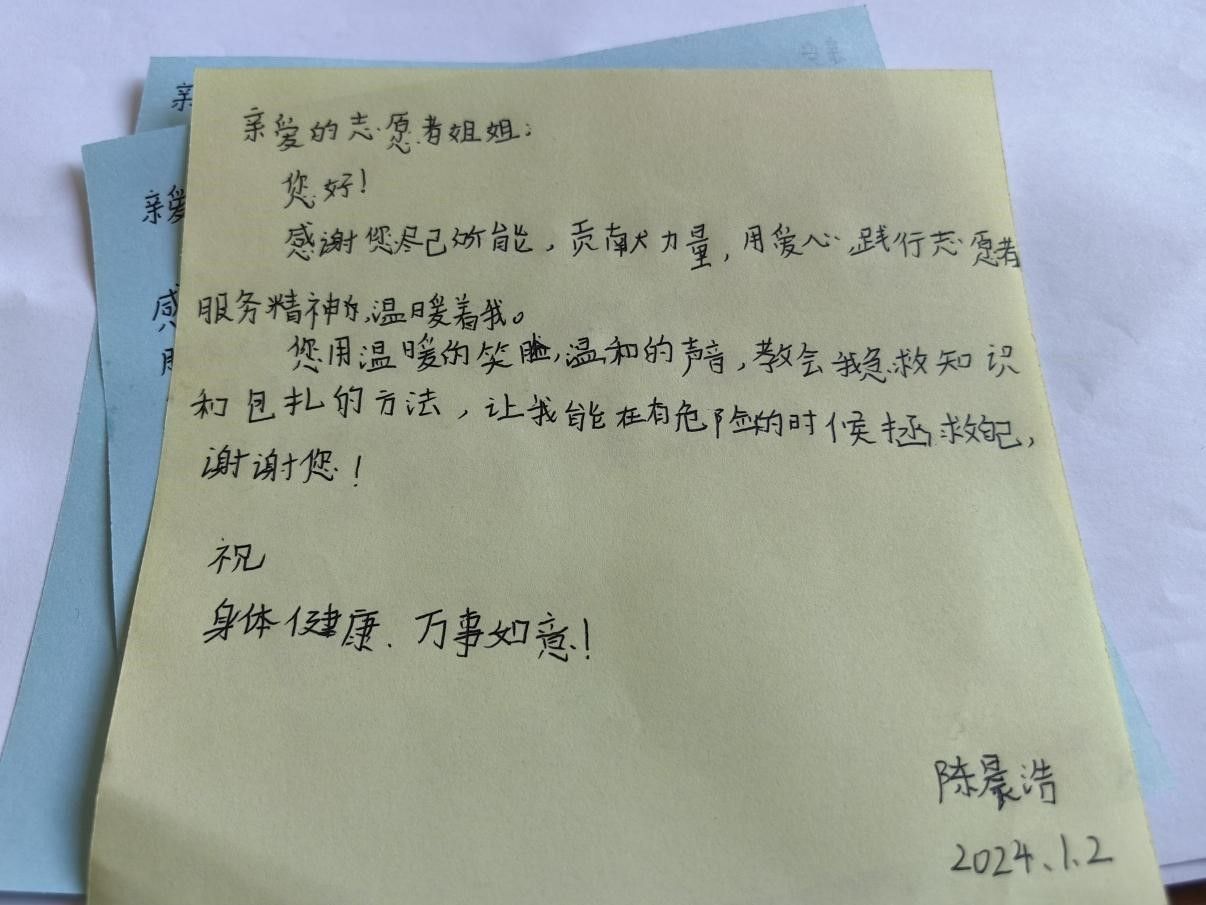 亲爱的志愿者姐姐：
您好！
感谢您尽己所能，贡献力量，用爱心践行志愿者
服务精神，温暖着我。
您用温暖的笑脸，温和的声音，教会我急救知识
和包扎的方法，让我能在有危险的时候拯救自己，
谢谢您！
祝
身体健康、万事如意！
陈晨浩
2024.1.2
亲
亲爱
感
服